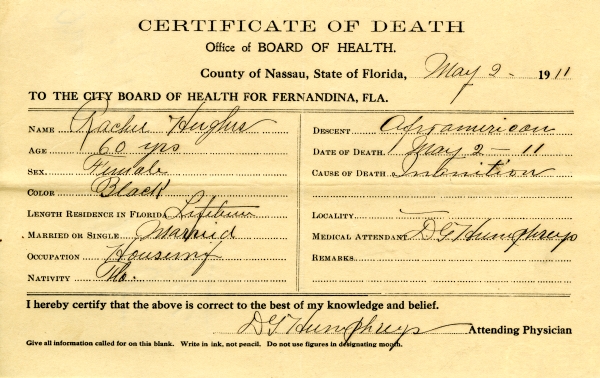 CERTIFICATE OF DEATH
Office of BOARD OF HEALTH.
County of Nassau, State of Florida, May 2 - 1911
TO THE CITY BOARD OF HEALTH FOR FERNANDINA, FLA.
NAME Rachel Hughes
AGE 60 yrs
SEX. Female
COLOR Black
LENGTH RESIDENCE IN FLORIDA Lifetime
MARRIED OR SINGLE Married
OCCUPATION Housewf
NATIVITY Fla.
DESCENT Afroamerican
DATE OF DEATH. May 2 - 11
CAUSE OF DEATH
LOCALITY
MEDICAL ATTENDANT D G Humphreys
REMARKS
I hereby certify that the above is correct to the best of my knowledge and belief.
D G Humphreys Attending Physician
Give all information called for on this blank. Write in ink, not pencil. Do not use figures in designating month.